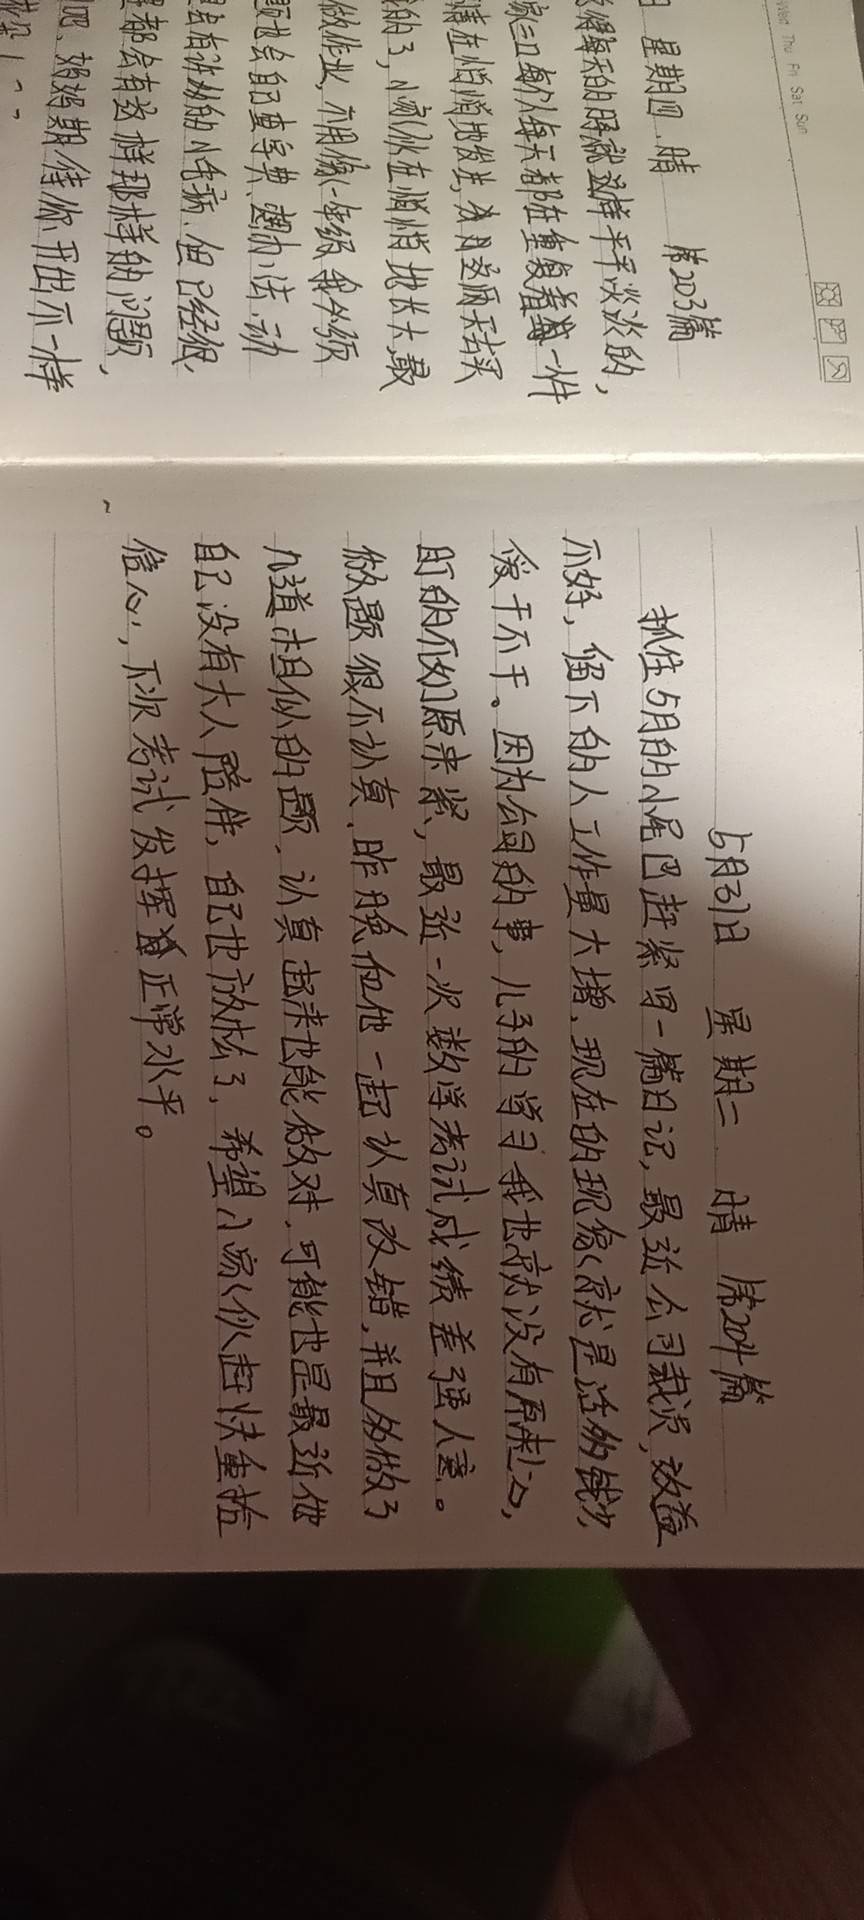 Wed Thu Fri Sat Sun
日 星期四 晴 第203篇
每天的时候就这样平平淡淡的,
家三口每个人每天都在重复着每一件
情在悄悄地发生,
的了,小家伙在悄悄地长大,最
做作业,不用像一年级我必须
题也会自己查字典,想办法,动
是有许多的小毛病,但已经很
都会有这样那样的问题,
吧,妈妈期待你开出不一样
5月31日 星期二 晴 第204篇
抓住5月的小尾巴赶紧写一篇日记,最近公司裁员,效益
不好,留下的人工作量大增,现在的现象就是活多钱少,
爱干不干。因为公司的事,儿子的学习我也就没有原来上心,
盯的不如原来紧,最近一次数学考试成绩差强人意。
做题很不认真,昨晚和他一起认真改错,并且多做了
几道相似的题,认真起来也能做对,可能也是最近他
自己没有大人陪伴,自己也放松了,希望小家伙赶快重拾
信心,下次考试发挥正常水平。